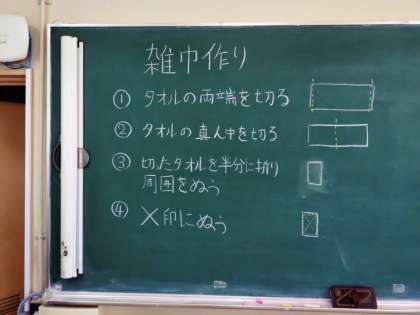 雑巾作り
① タオルの両端を切る
② タオルの真ん中を切る
③ 切ったタオルを半分に折り
周囲をぬう
④ ×印にぬう